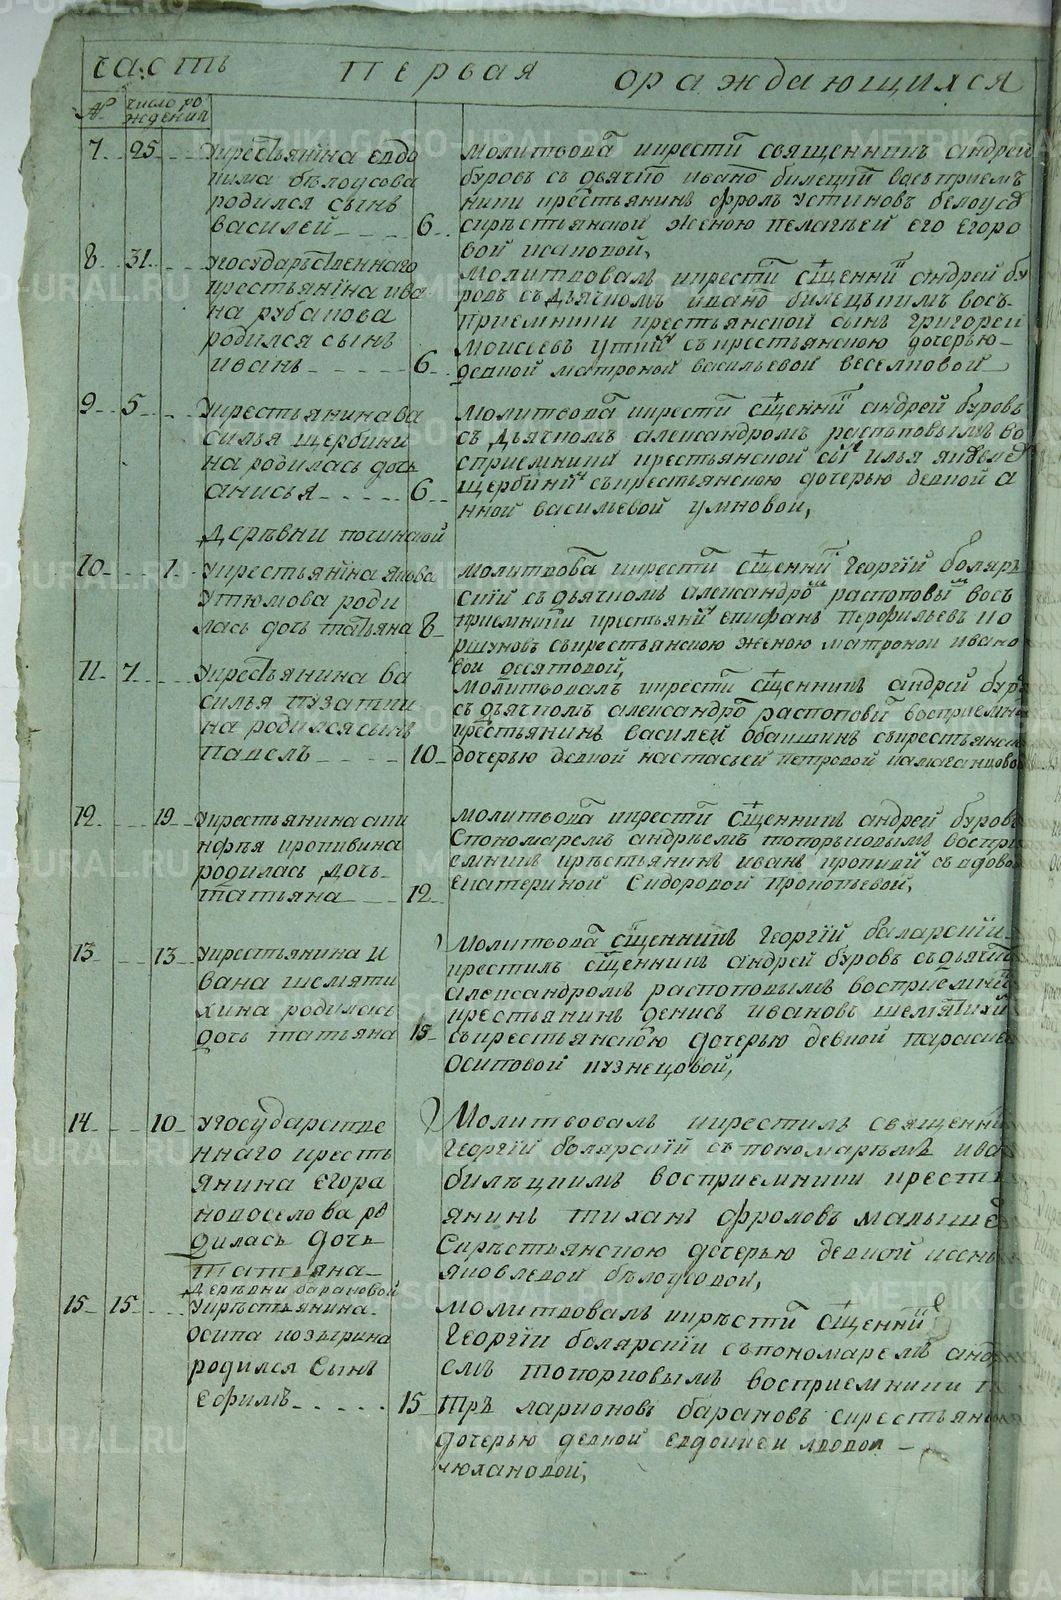 часть первая ораждающихся
№ число рождения
7 25 Укрестьянина евдо
кима бѣлоусова
родился сынъ
василей 6
молитвова икрести священникъ андрей
буровъ съ дьячко ивано билецки воспріем
ники крестьянинъ фролъ устиновъ белоусо
скрѣстьянской женою пелагьей его егоро
вой исаковой,
8 31 угосударственнаго
крестьянина ива
на рубакова
родился сынъ
иванъ 6
Молитвовалъ икрести сщенни андрей бу
ровъ съ дьячкомъ ивано билецкимъ вось
приемники крестьянской сынъ григорей
Моисеевъ съкрестьянскою дочерью
девкой матроной васильевой веселковой
9 5 Укрестьянина ва
силья щербини
на родилась дочь
анисья 6
молитвова икрести сщенни андрей буровъ
съ дьячкомъ александромъ распоповымъ во
сприемники крестьянской илья
щербини съкрестьянскою дочерью девкой а
нной васильевой умновой,
деревни починкой
10 1 укрестьянина якова
утюмова роди
лась дочь татьяна 8
молитвова икрести сщенни георгій боляр
скій съ дьячкомъ александро распоповы вос
приемники крестьяни епифанъ перфильевъ ко
ршуновъ съкрестьянскою женою матроной ивано
вой десятовой,
11 7 укрестьянина ва
силья пузатки
на родился сынъ
павелъ 10
молитвовалъ икрести сщенникъ андрей буро
съ дьячкомъ александро распопови восприемни
крестьянинъ василей обаншинъ съкрестьянск
дочерью девкой настасьей петровой
12 19 укрестьянина они
сифья кропивина
родилась дочь
татьяна 12
молитвова икрести сщенникъ андрей буровъ
спономаремъ андрѣемъ топорковымъ воспри
емникъ крѣстьянинъ иванъ кропиви съ вдовой
екатериной сидоровой прокопьевой,
13 13 укрестьянина и
вана шемяти
хина родилась
дочь татьяна 15
молитвова сщенникъ георгій балярский
крестилъ сщенникъ андрей буровъ съ дьячко
александромъ распоповымъ восприемни
крестьянинъ денисъ ивановъ шемятихи
съкрестьянскою дочерью девкой параске
осиповой кузнецовой,
14 10 угосударстве
ннаго кресть
янина егора
новоселова ро
дилась дочь
татьяна
Молитвовалъ икрестилъ священни
георгій боларскій съ пономарьемъ ива
билецкимъ восприемники крест
янинъ тиханъ фроловъ малыше
скрѣстьянскою дочерью девкой ксень
яковлевой бѣлоусовой,
деревни барановой
15 15 укрѣстьянина
осипа козырина
родился сынъ
ефимъ 15
молитвовалъ икрѣсти сщенни
георгіи болярскіи съпономаремъ андр
емъ топорковымъ восприемники п
тръ ларионовъ барановъ скрестьянско
дочерью девкой евдокиеи
чюхановой,